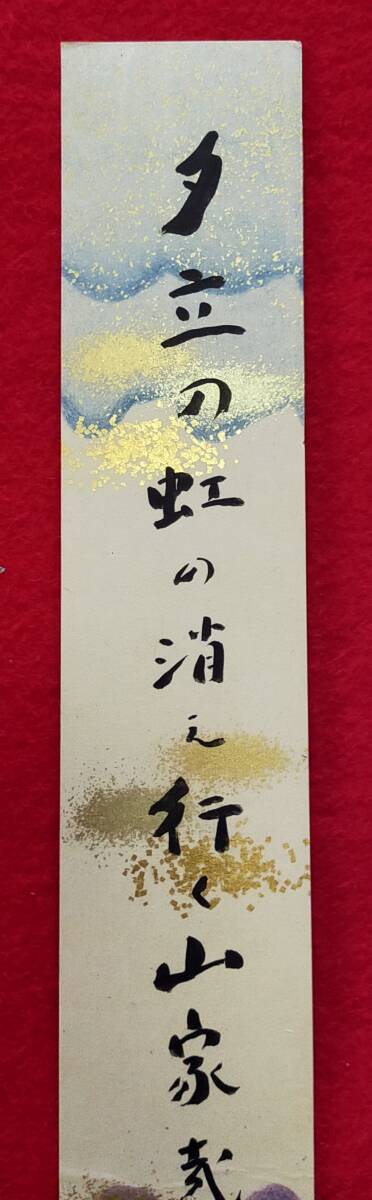 夕立の虹の消え行く山家哉